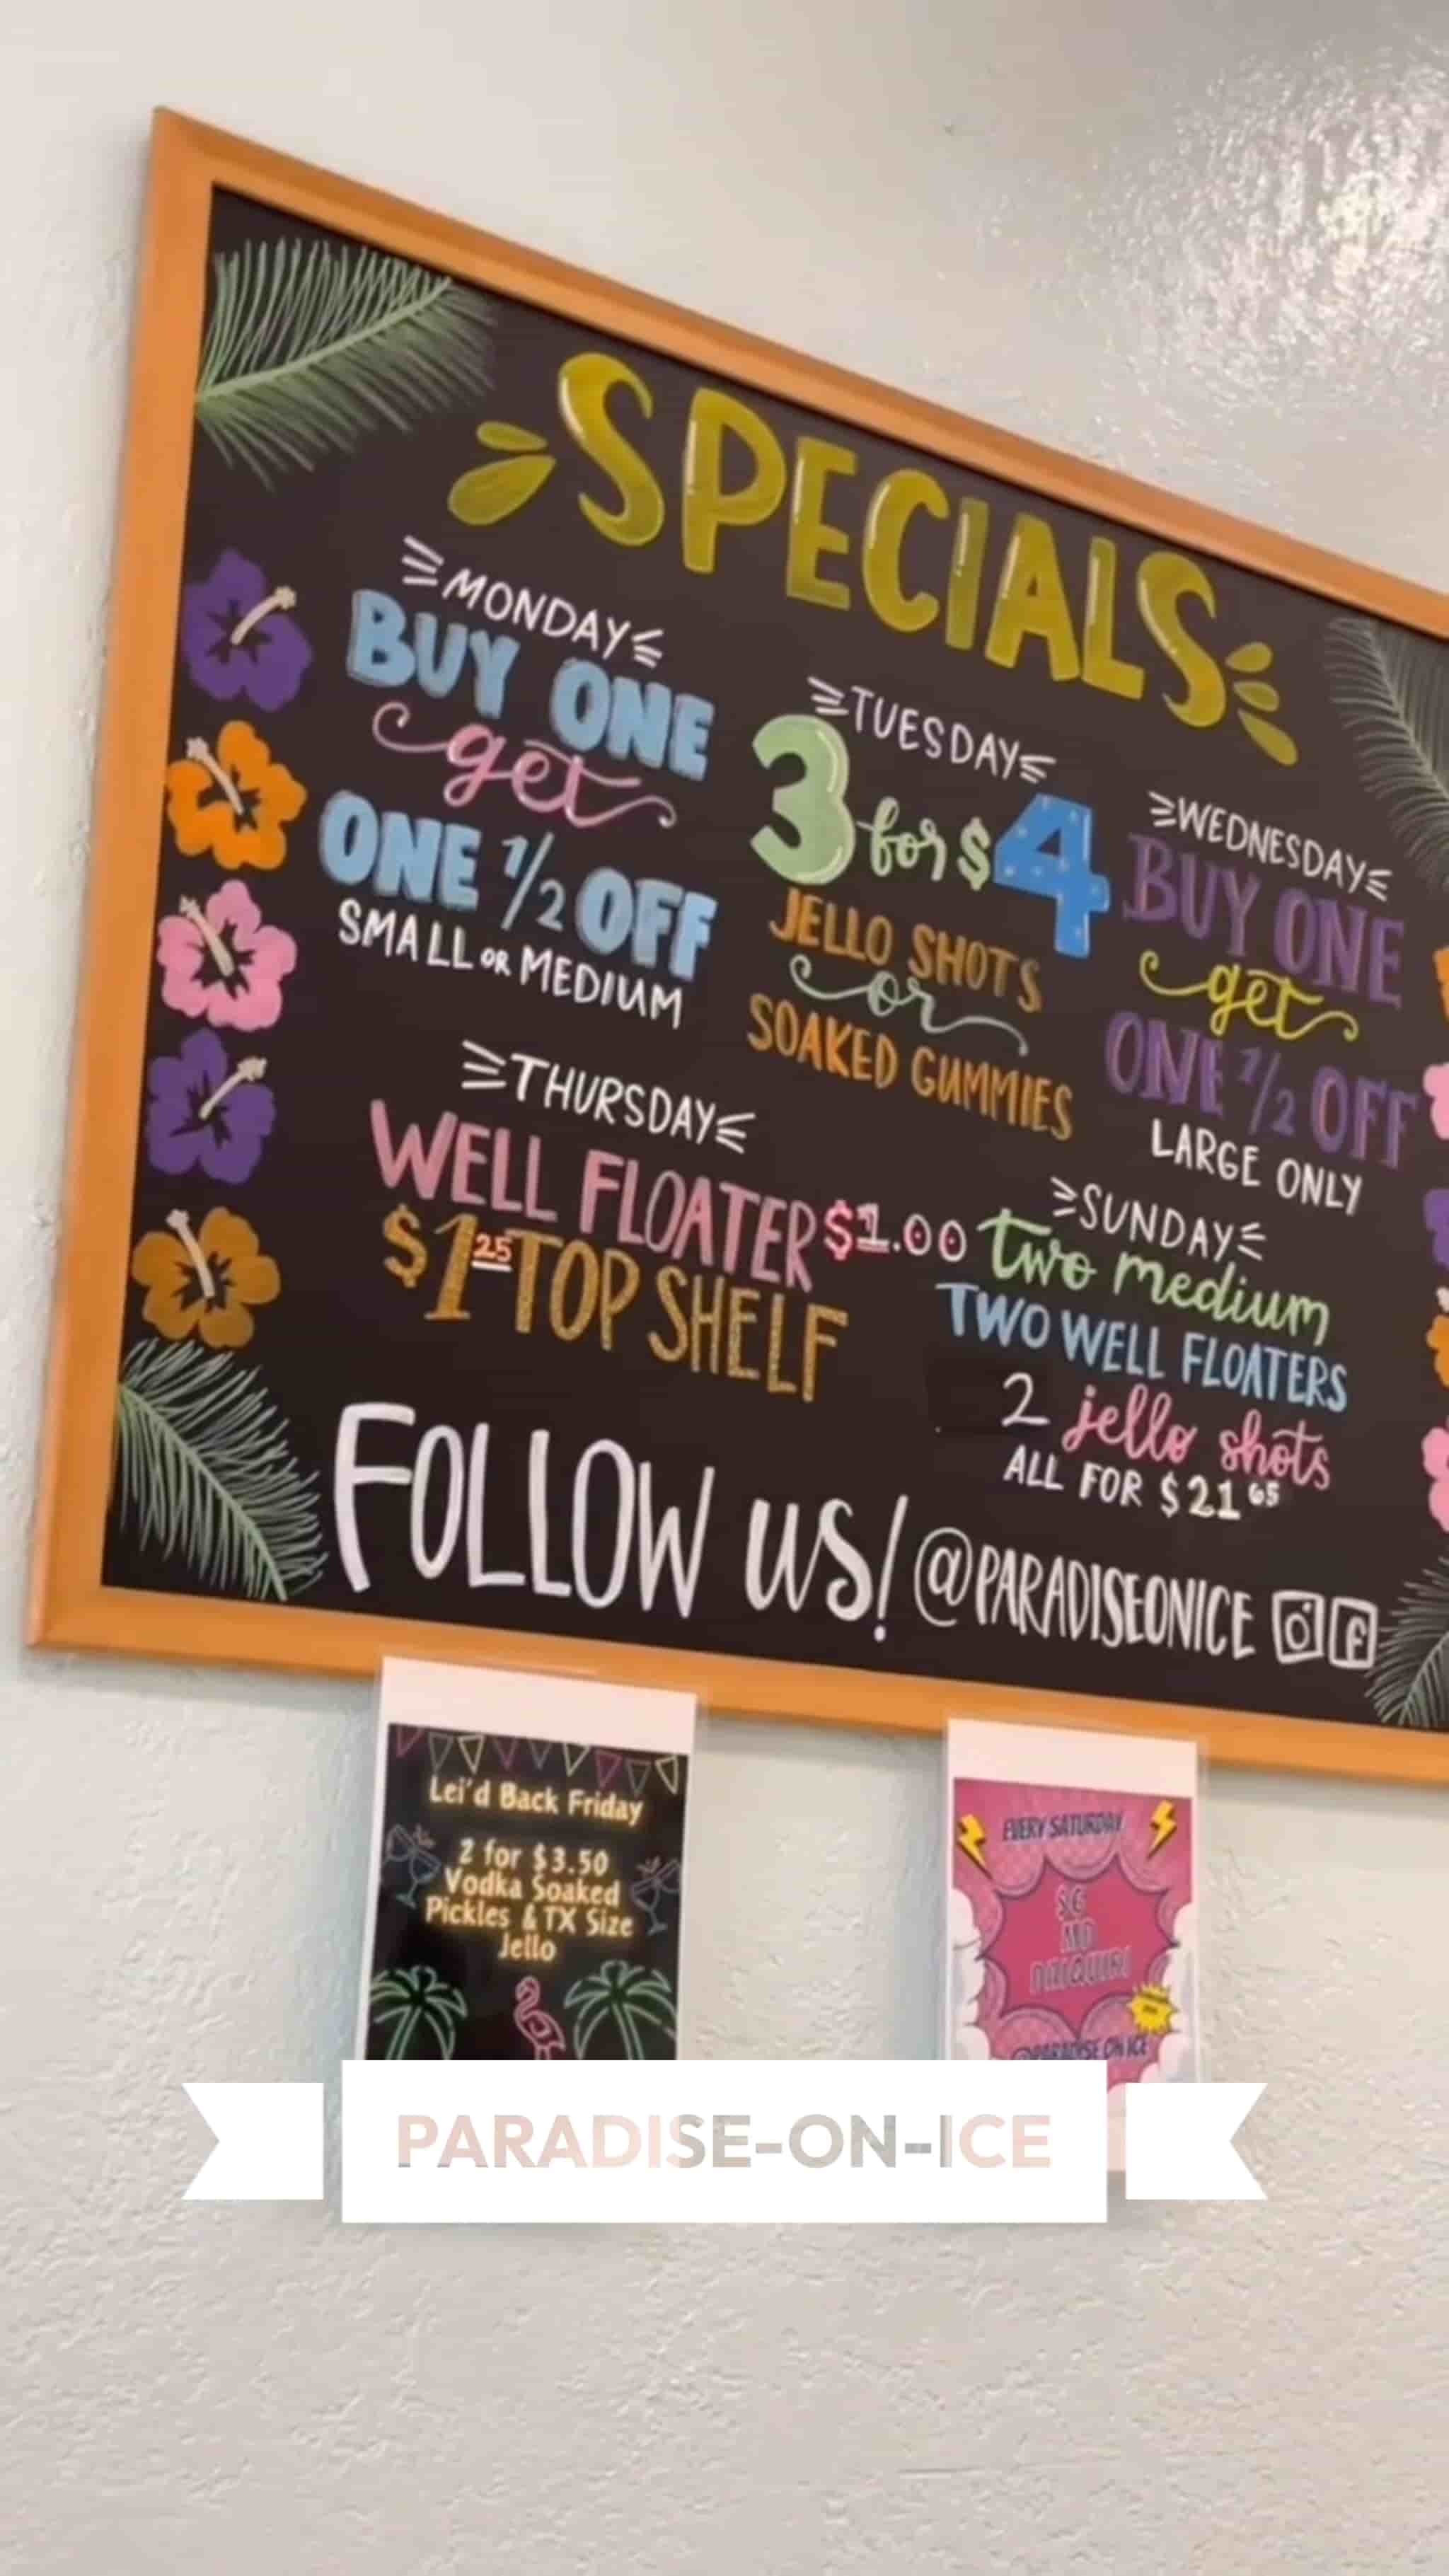 SPECIALS
MONDAY
BUY ONE
get
ONE 1/2 OFF
SMALL OR MEDIUM
TUESDAY
3 for $4
JELLO SHOTS
or
SOAKED GUMMIES
WEDNESDAY
BUY ONE
get
ONE 1/2 OFF
LARGE ONLY
THURSDAY
WELL FLOATER $1.00
$1 25 TOP SHELF
SUNDAY
two medium
TWO WELL FLOATERS
2 jello shots
ALL FOR $21 65
FOLLOW US! @PARADISEONICE
Lei'd Back Friday
2 for $3.50
Vodka Soaked
Pickles & TX Size
Jello
EVERY SATURDAY
MD
DAIQUIRI
@PARADISE ON ICE
PARADISE-ON-ICE